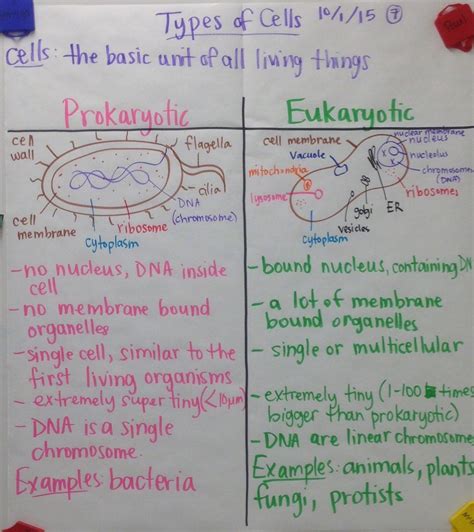 Types of Cells 10/1/15 7
Cells: the basic unit of all living things
Prokaryotic
cell wall
flagella
cilia
DNA (chromosome)
ribosome
cytoplasm
cell membrane
-no nucleus, DNA inside
cell
-no membrane bound
organelles
-single cell, similar to the
first living organisms
- extremely super tiny (<10μm)
- DNA is a single
chromosome.
Examples: bacteria
Eukaryotic
cell membrane
nuclear membrane
nucleus
Vacuole
nucleolus
mitochondria
chromosome
(DNA)
lysosome
ribosomes
golgi
ER
vesicles
cytoplasm
- bound nucleus, containing DN
- a lot of membrane
bound organelles
- single or multicellular
- extremely tiny (1-100 times
bigger than prokaryotic)
-DNA are linear chromosome
Examples: animals, plants
fungi, protists